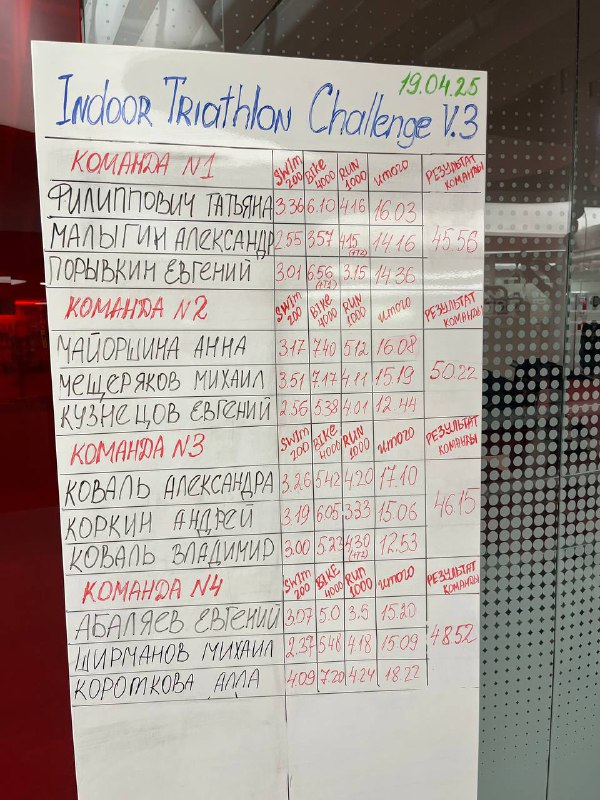 19.04.25
Indoor Triathlon Challenge V.3
КОМАНДА N1 Swim 200 Bike 4000 RUN 1000 итого РЕЗУЛЬТАТ КОМАНДЫ
ФИЛИППОВИЧ ТАТЬЯНА 3.36 6.10 4.16 16.03
МАЛЫГИН АЛЕКСАНДР 2.55 3.57 4.15 (+72) 14.16 45.56
ПОРЫВКИН ЕВГЕНИЙ 3.01 6.56 3.15 14.36
КОМАНДА N2 Swim 200 Bike 4000 RUN 1000 итого РЕЗУЛЬТАТ КОМАНДЫ
МАЙОРШИНА АННА 3.17 7.40 5.12 16.08
МЕЩЕРЯКОВ МИХАИЛ 3.51 7.17 4.11 15.19 50.22
КУЗНЕЦОВ ЕВГЕНИЙ 2.56 5.38 4.01 12.44
КОМАНДА N3 Swim 200 BIKE 4000 RUN 1000 итого РЕЗУЛЬТАТ КОМАНДЫ
КОВАЛЬ АЛЕКСАНДРА 3.26 5.42 4.20 17.10
КОРКИН АНДРЕЙ 3.19 6.05 3.33 15.06 46.15
КОВАЛЬ ВЛАДИМИР 3.00 5.23 4.30 (+72) 12.53
КОМАНДА N4 Swim 200 BIKE 4000 Run 1000 итого РЕЗУЛЬТАТ КОМАНДЫ
АБАЛЯЕВ ЕВГЕНИЙ 3.07 5.0 3.5 15.20
ШИРМАНОВ МИХАИЛ 2.37 5.48 4.18 15.09 48.52
КОРОТКОВА АЛЛА 4.09 7.20 4.24 18.22